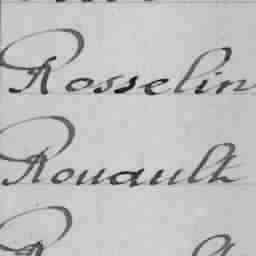 Rosselin
Rouault